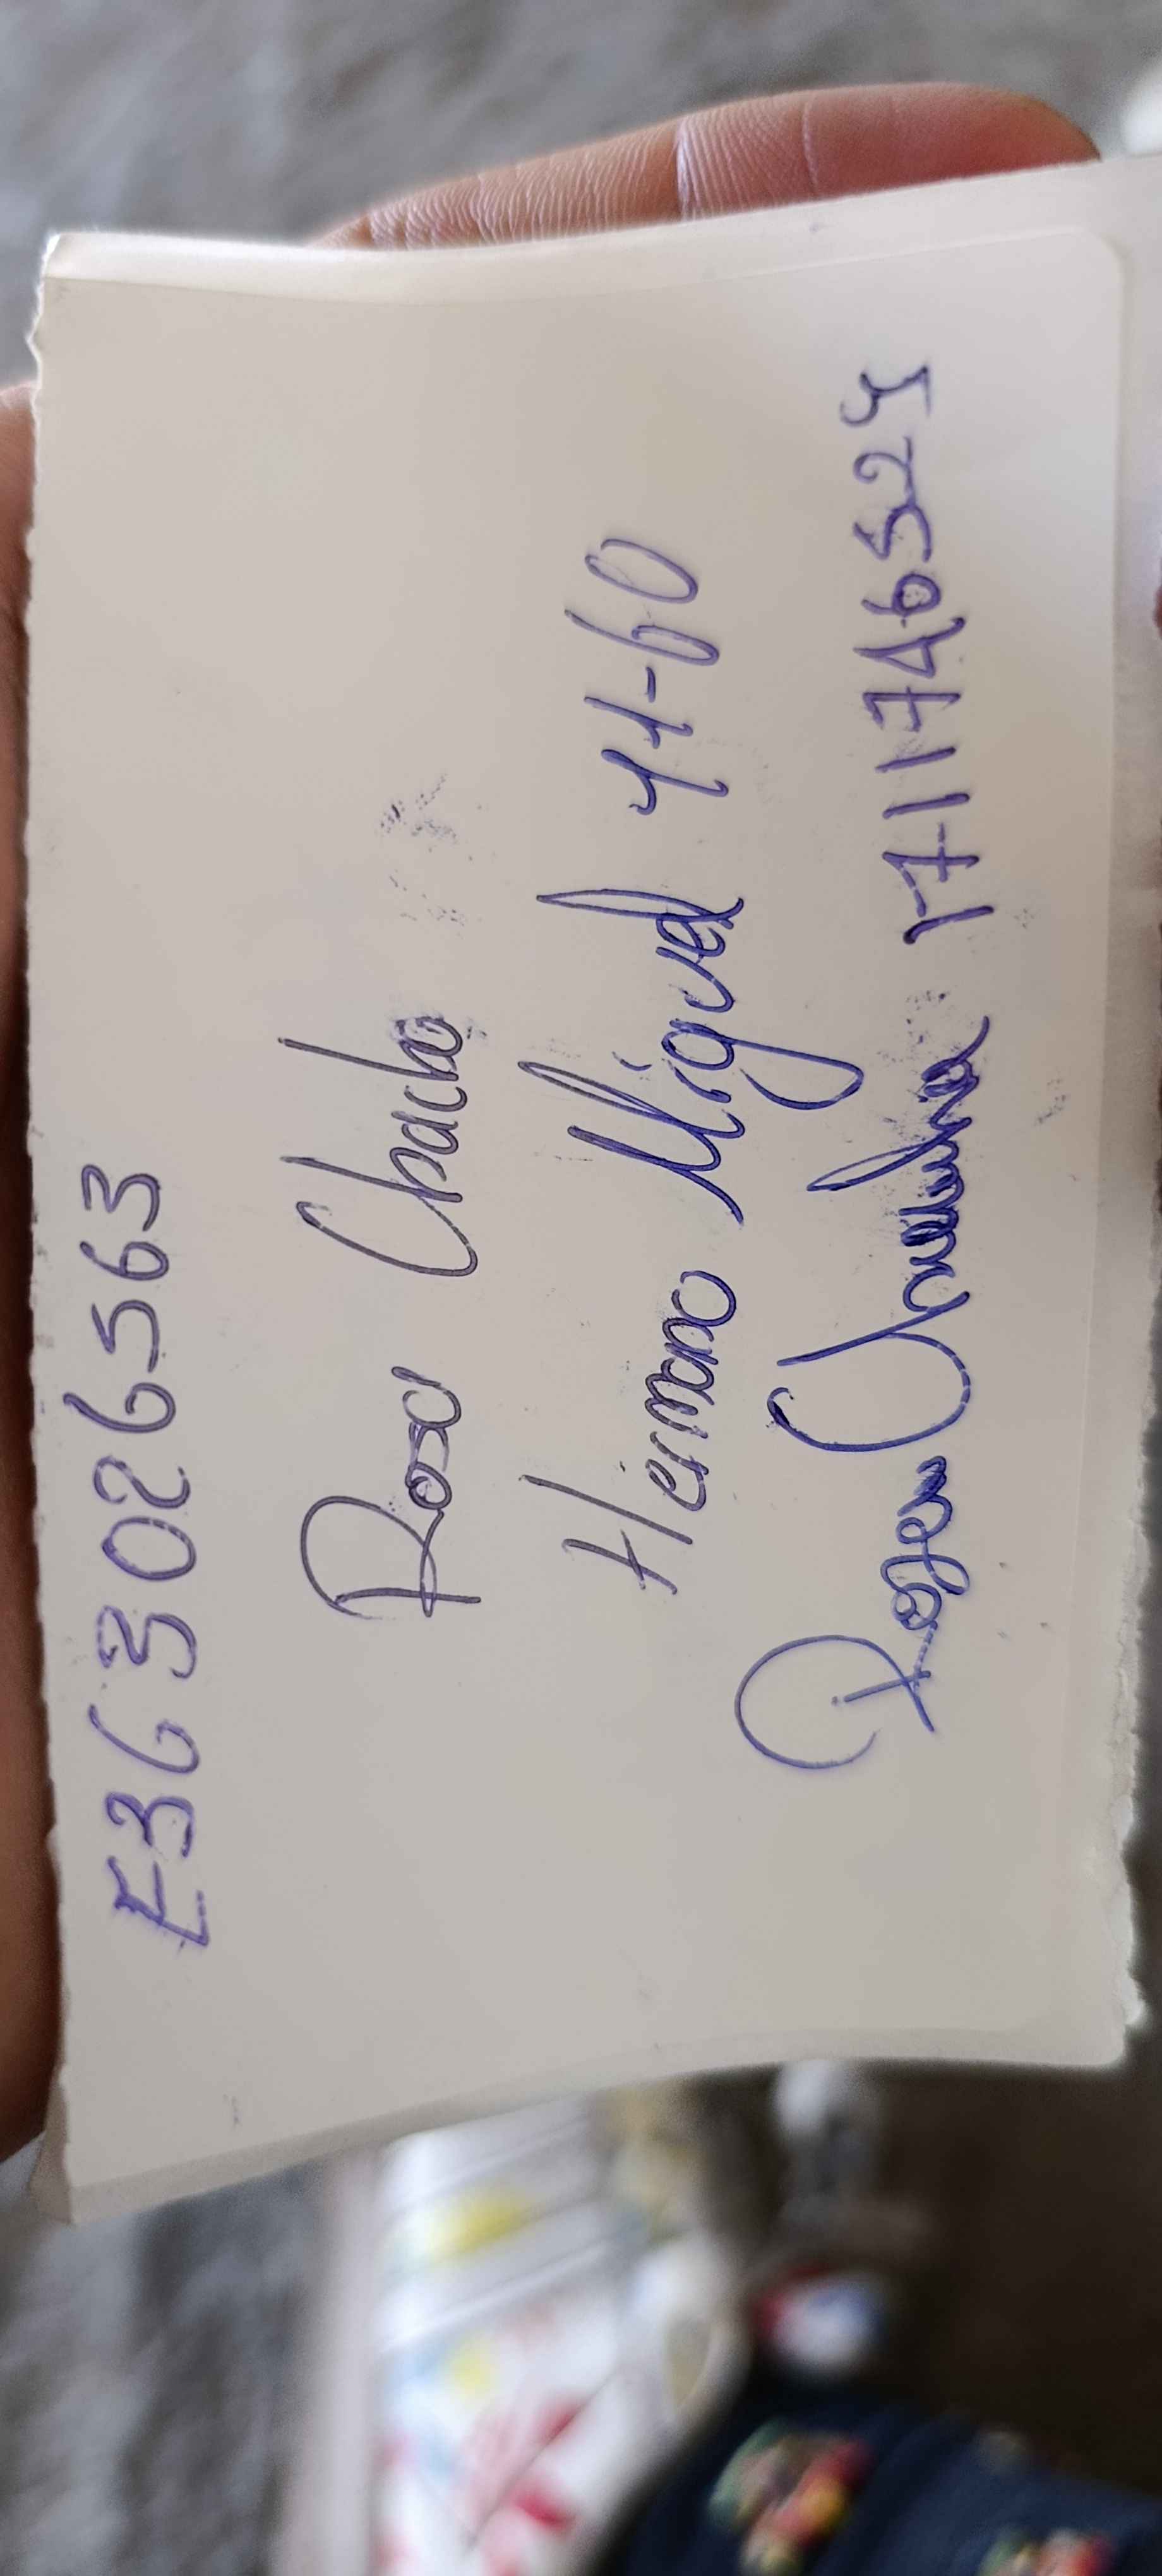 E363026563
Rosa Chacha
Hermano Miguel 41-60
Rosa 1711746525